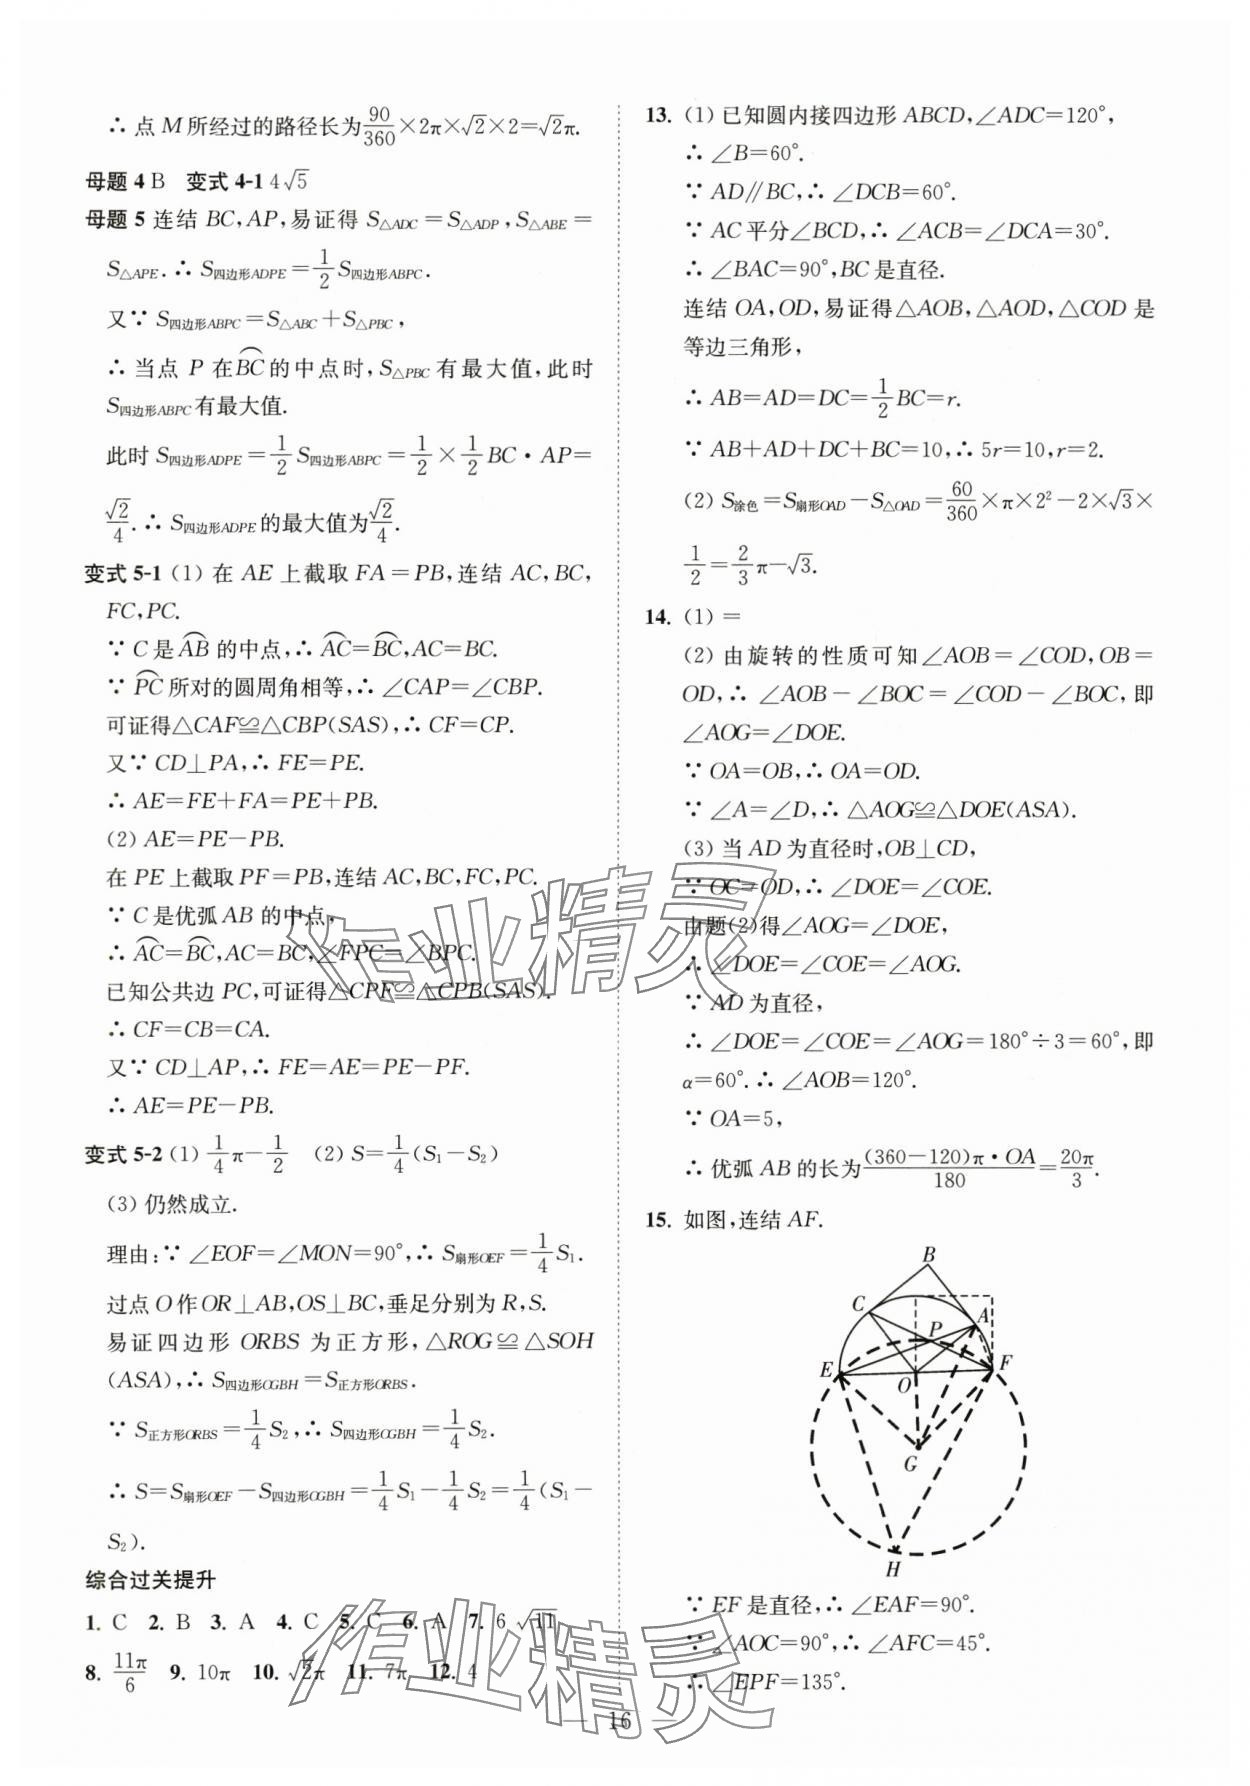 ∴ 点 M 所经过的路径长为 90/360 ×2π×√2×2=√2π.
母题 4 B 变式 4-1 4√5
母题 5 连结 BC,AP,易证得 S△ADC=S△ADP,S△ABE=
S△APE.∴ S四边形ADPE=1/2 S四边形ABPC.
又∵ S四边形ABPC=S△ABC+S△PBC,
∴ 当点 P 在⌒BC的中点时,S△PBC有最大值,此时
S四边形ABPC有最大值.
此时 S四边形ADPE=1/2 S四边形ABPC=1/2×1/2 BC·AP=
√2/4.∴ S四边形ADPE的最大值为√2/4.
变式 5-1 (1) 在 AE 上截取 FA=PB,连结 AC,BC,
FC,PC.
∵ C 是⌒AB 的中点,∴ ⌒AC=⌒BC,AC=BC.
∵ ⌒PC所对的圆周角相等,∴ ∠CAP=∠CBP.
可证得△CAF≌△CBP(SAS),∴ CF=CP.
又∵ CD⊥PA,∴ FE=PE.
∴ AE=FE+FA=PE+PB.
(2) AE=PE-PB.
在 PE 上截取 PF=PB,连结 AC,BC,FC,PC.
∵ C 是优弧 AB 的中点,
∴ ⌒AC=⌒BC,AC=BC,∠FPC=∠BPC.
已知公共边 PC,可证得△CPF≌△CPB(SAS).
∴ CF=CB=CA.
又∵ CD⊥AP,∴ FE=AE=PE-PF.
∴ AE=PE-PB.
变式 5-2 (1) 1/4 π-1/2 (2) S=1/4(S₁-S₂)
(3) 仍然成立.
理由:∵ ∠EOF=∠MON=90°,∴ S扇形OEF=1/4 S₁.
过点 O 作 OR⊥AB,OS⊥BC,垂足分别为 R,S.
易证四边形 ORBS 为正方形,△ROG≌△SOH
(ASA),∴ S四边形OGBH=S正方形ORBS.
∵ S正方形ORBS=1/4 S₂,∴ S四边形OGBH=1/4 S₂.
∴ S=S扇形OEF-S四边形OGBH=1/4 S₁-1/4 S₂=1/4(S₁-
S₂).
综合过关提升
1. C 2. B 3. A 4. C 5. C 6. A 7. 6 √11
8. 11π/6 9. 10π 10. √2π 11. 7π 12. 4
13. (1) 已知圆内接四边形 ABCD,∠ADC=120°,
∴ ∠B=60°.
∵ AD∥BC,∴ ∠DCB=60°.
∵ AC 平分∠BCD,∴ ∠ACB=∠DCA=30°.
∴ ∠BAC=90°,BC 是直径.
连结 OA,OD,易证得△AOB,△AOD,△COD 是
等边三角形,
∴ AB=AD=DC=1/2 BC=r.
∵ AB+AD+DC+BC=10,∴ 5r=10,r=2.
(2) S涂色=S扇形OAD-S△OAD=60/360×π×2²-2×√3×
1/2=2/3 π-√3.
14. (1) =
(2) 由旋转的性质可知∠AOB=∠COD,OB=
OD,∴ ∠AOB-∠BOC=∠COD-∠BOC,即
∠AOG=∠DOE.
∵ OA=OB,∴ OA=OD.
∵ ∠A=∠D,∴ △AOG≌△DOE(ASA).
(3) 当 AD 为直径时,OB⊥CD,
∵ OC=OD,∴ ∠DOE=∠COE.
由题(2)得∠AOG=∠DOE,
∴ ∠DOE=∠COE=∠AOG.
∵ AD 为直径,
∴ ∠DOE=∠COE=∠AOG=180°÷3=60°,即
α=60°.∴ ∠AOB=120°.
∵ OA=5,
∴ 优弧 AB 的长为 (360-120)π·OA/180=20π/3.
15. 如图,连结 AF.
B
C
A
P
E
O
F
G
H
∵ EF 是直径,∴ ∠EAF=90°.
∵ ∠AOC=90°,∴ ∠AFC=45°.
∴ ∠EPF=135°.
16
作业精灵
作业精灵